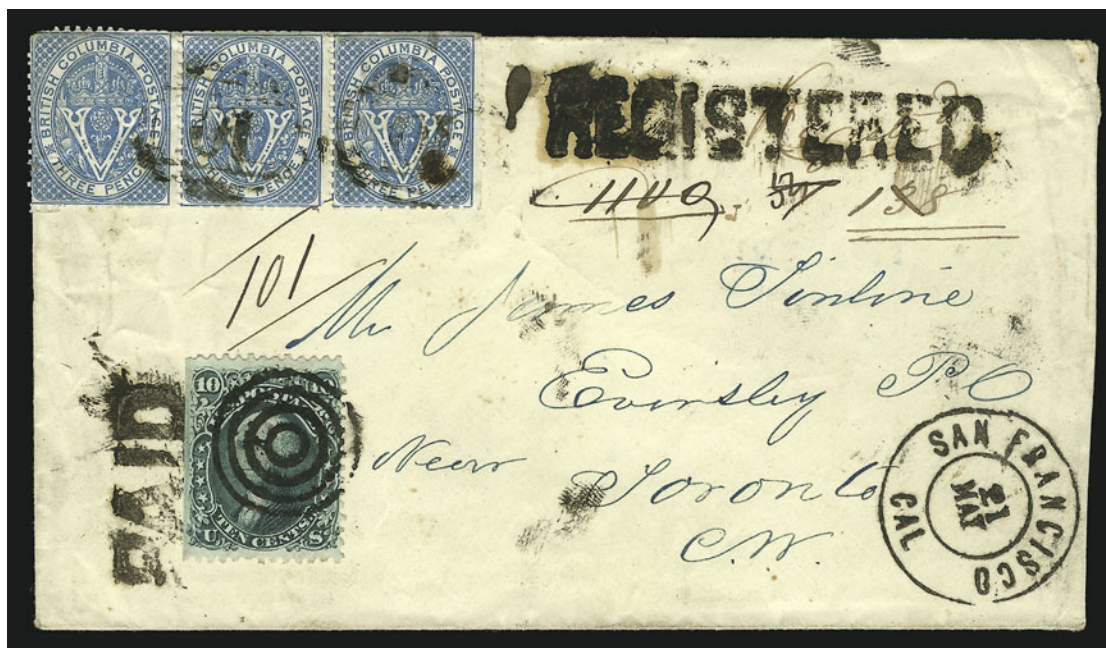 BRITISH COLUMBIA POSTAGE
THREE PENCE
BRITISH COLUMBIA POSTAGE
THREE PENCE
BRITISH COLUMBIA POSTAGE
THREE PENCE
REGISTERED
138
101
Mr James Tinline
Eversley P.O
Near Toronto
C.W.
PAID
10
U.S. POSTAGE
TEN CENTS
U S
SAN FRANCISCO
21
MAY
CAL